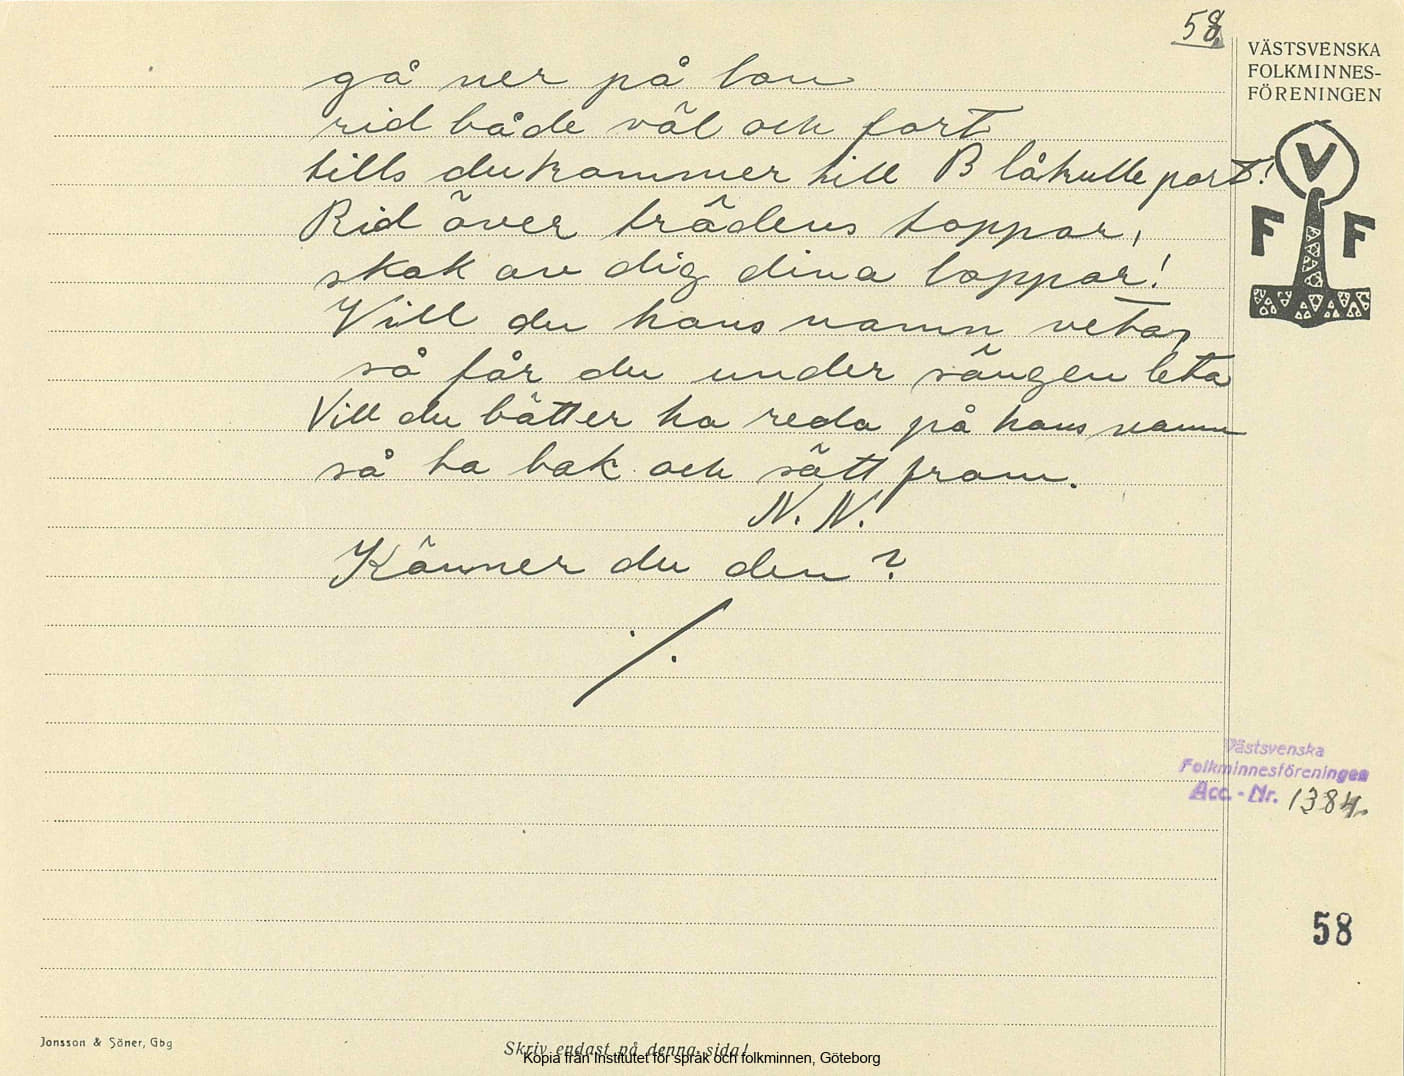 58
VÄSTSVENSKA
FOLKMINNES-
FÖRENINGEN
V
F F
gå ner på
rid både väl och fort
tills du kommer till Blåkulle port!
Rid över trädens toppar,
skak av dig dina loppar!
Vill du hans namn veta,
så får du under sängen leta
Vill du bätter ha reda på hans namn
så ta bak och sätt fram.
N. N.
Känner du den?
Västsvenska
Folkminnesföreningen
Acc. - Nr. 1384.
58
Jonsson & Söner, Gbg
Skriv endast på denna sida!
Kopia från Institutet för språk och folkminnen, Göteborg